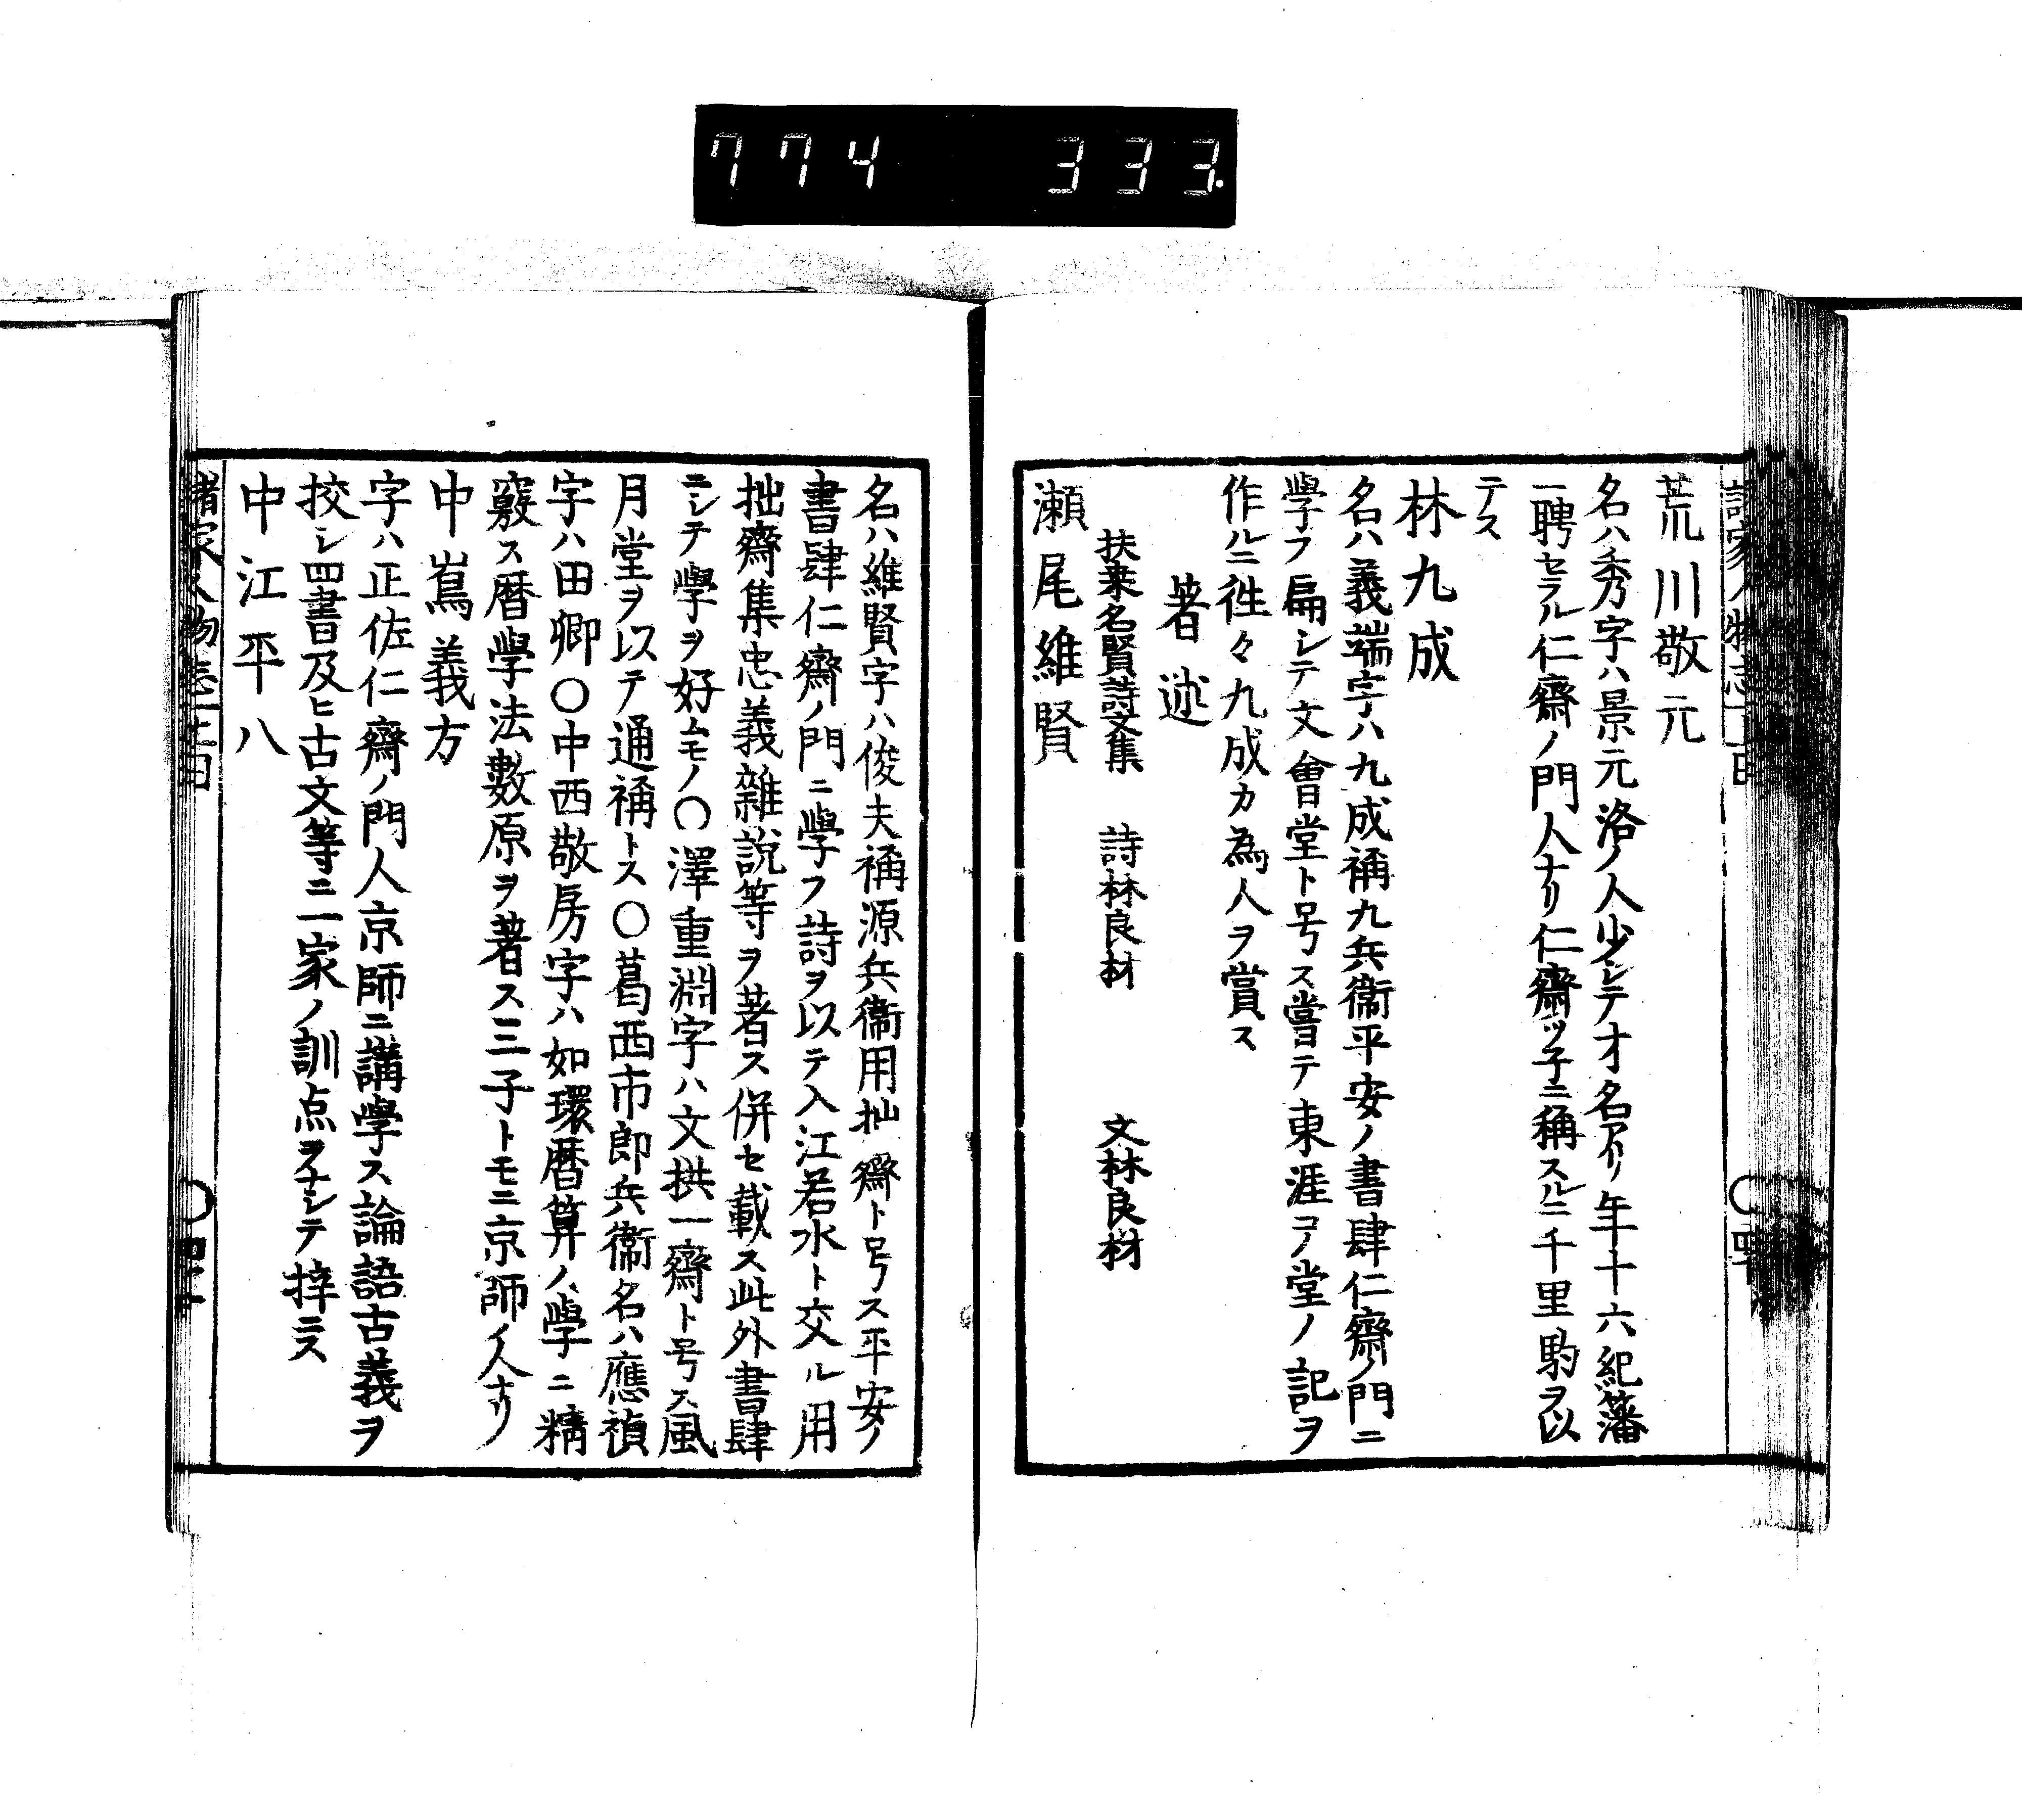 774 333.
荒川敬元
名ハ秀字ハ景元洛ノ人少シテオ名アリ年十六紀藩
一聘セラル仁齋ノ門人ナリ仁齋ツ子ニ稱スルニ千里駒ヲ以
テス
林九成
名ハ義端字ハ九成稱九兵衞平安ノ書肆仁齋ノ門ニ
學フ扁シテ文會堂ト号ス嘗テ東涯コノ堂ノ記ヲ
作ルニ徃々九成カ為人ヲ賞ス
著述
扶桒名賢詩文集 詩林良材 文林良材
瀬尾維賢
名ハ維賢字ハ俊夫稱源兵衞用拙齋ト号ス平安ノ
書肆仁齋ノ門ニ學フ詩ヲ以テ入江若水ト交ル用
拙齋集忠義雜説等ヲ著ス併セ載ス此外書肆
ニシテ學ヲ好ムモノ〇澤重淵字ハ文拱一齋ト号ス風
月堂ヲ以テ通稱トス〇葛西市郎兵衞名ハ應禎
字ハ田卿〇中西敬房字ハ如環暦算ノ學ニ精
竅ス暦學法數原ヲ著ス三子トモニ京師ノ人ナリ
中嶌義方
字ハ正佐仁齋ノ門人京師ニ講學ス論語古義ヲ
挍シ四書及ヒ古文等ニ一家ノ訓点ヲナシテ梓ニス
中江平八
諸家人物志